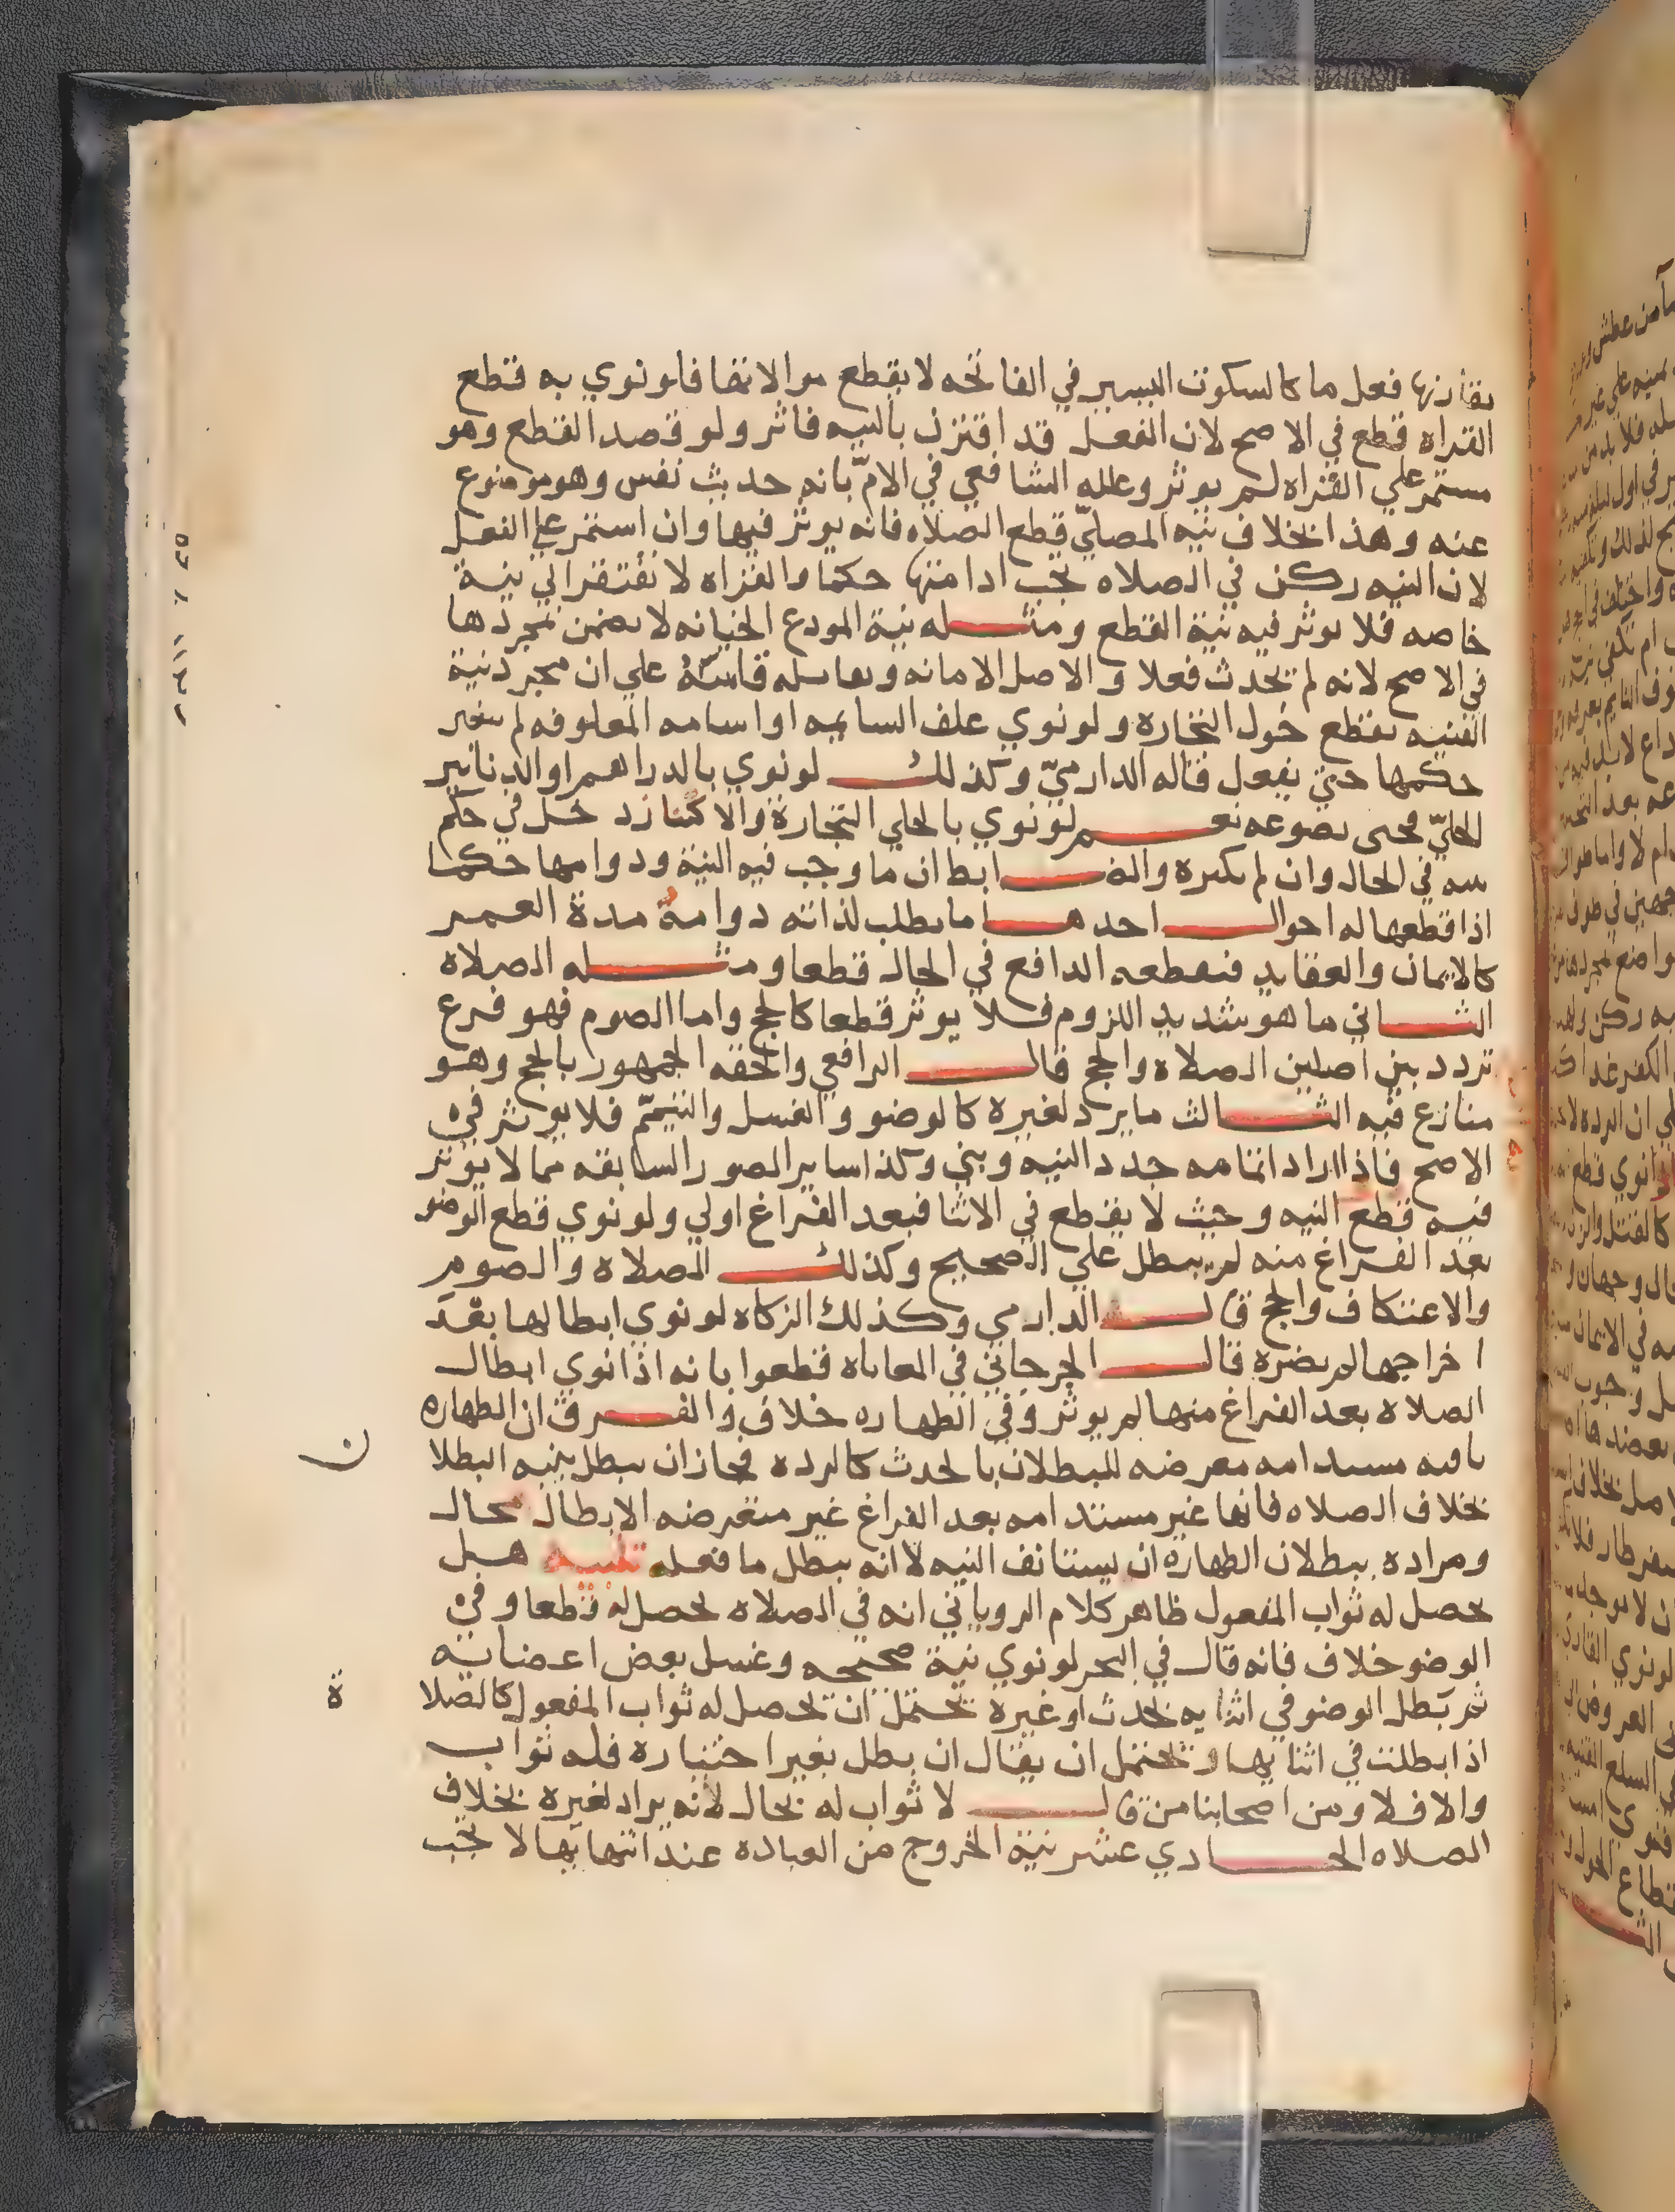 يقارنها فعل ما كالسكوت اليسير في الفاتحه لا يقطع موالاتها فلو نوي به قطع
القراه قطع في الاصح لان الفعل قد اقترن بالنيه فاثر ولو قصد القطع وهو
مستمر علي القراه لم يوثر وعلله الشافعي في الامّ بانه حديث نفس وهو موضوع
عنه وهذا بخلاف نيه المصليّ قطع الصلاه فانه يوثر فيها وان استمر علي الفعل
لان النيه ركن في الصلاه تجب ادامتها حكما والقراه لا تفتقر الي نية
خاصه فلا يوثر فيه نية القطع ومثله نية المودع الخيانه لا يضمن بمجردها
في الاصح لانه لم تحدث فعلا والاصل الامانه و علي ان مجرد نية
القنيه تقطع حول التجارة ولو نوي علف السايمه او اسامه المعلوفه لم يتغير
حكمها حتي يفعل قاله الدارميّ وكذلك لو نوي بالدراهم او الدنانير
الحليّ حتى يصوغه نعم لو نوي بالحلي التجارة والاكتناز دخل في حكم
نيته في الحال وان لم يكسره والضابط ان ما وجب فيه النية ودوامها حكما
اذا قطعها له احوال احدها ما يطلب لذاته دوامه مدة العمر
كالايمان والعقايد فيقطعه الدافع في الحال قطعا ومثله الصلاه
الثاني ما هو شديد اللزوم فلا يوثر قطعا كالحج واما الصوم فهو فرع
تردد بين اصلين الصلاه والحج قال الرافعي والحقه الجمهور بالحج وهو
منازع فيه الثالث ما يرد لغيرة كالوضو والغسل والتيمّم فلا يوثر في
الاصح فاذا اراد اتمامه جدد النيه وبني وكذا ساير الصور السابقه مما لا يوثر
فيه قطع النيه وحيث لا يقطع في الاثنا فبعد الفراغ اولي ولو نوي قطع الوضو
بعد الفراغ منه لم يبطل علي الصحيح وكذلك الصلاه والصوم
والاعتكاف والحج قال الدارمي وكذلك الزكاه لو نوي ابطالها بعد
اخراجها لم يضره قال الجرجاني في المعاياه قطعوا بانه اذا نوي ابطال
الصلاه بعد الفراغ منها لم يوثر وفي الطهاره خلاف والفرق ان الطهاره
باقيه مستدامه معرضه للبطلان بالحدث كالرده فجاز ان يبطل بنيه البطلا
ن
بخلاف الصلاه فانها غير مستدامه بعد الفراغ غير متعرضه الابطال بحال
ومراده ببطلان الطهارة ان يستانف النيه لا انه يبطل ما فعله تنبيه هل
يحصل له ثواب المفعول ظاهر كلام الروياني انه في الصلاه يحصل له قطعا وفي
الوضو خلاف فانه قال في البحر لو نوي نية صحيحه وغسل بعض اعضايه
ثم بطل الوضو في اثنايه بحدث او غيرة يحتمل ان يحصل له ثواب المفعول كالصلا
ة
اذا بطلت في اثنايها ويحتمل ان يقال ان بطل بغير اختياره فله ثواب
والا فلا ومن اصحابنا من قال لا ثواب له بحال لانه يراد لغيره بخلاف
الصلاه الحادي عشر نية الخروج من العباده عند انتهايها لا تجب